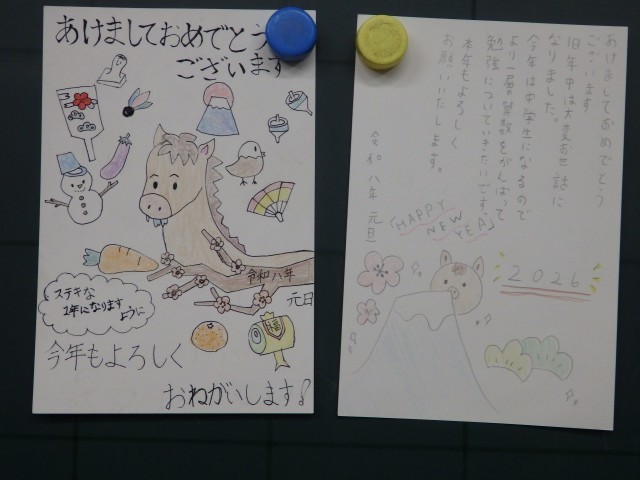 あけましておめでとう
ございます
令和八年
元旦
ステキな
1年になります
ように
福
今年もよろしく
おねがいします!
あけましておめでとう
ございます
旧年中は大変お世話に
なりました。
今年は中学生になるので
より一層算数をがんばって
勉強についていきたいです。
本年もよろしく
お願いいたします。
令和八年 元旦
「HAPPY
NEW
YEA」
2026